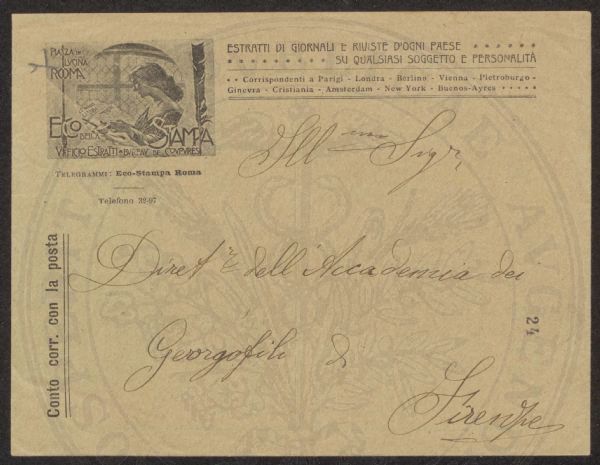 PIAZZA IN
LUCINA
ROMA
ECO DELLA STAMPA
VFFICIO ESTRATTI • BUREAU DE COUPURES
TELEGRAMMI: Eco-Stampa Roma
Telefono 32-97
ESTRATTI DI GIORNALI E RIVISTE D'OGNI PAESE
SU QUALSIASI SOGGETTO E PERSONALITÀ
Corrispondenti a Parigi - Londra - Berlino - Vienna - Pietroburgo -
Ginevra - Cristiania - Amsterdam - New York - Buenos-Ayres
Ill mo Sigr,
Diret re dell'Accademia dei
Georgofili di
Firenze
Conto corr. con la posta
24